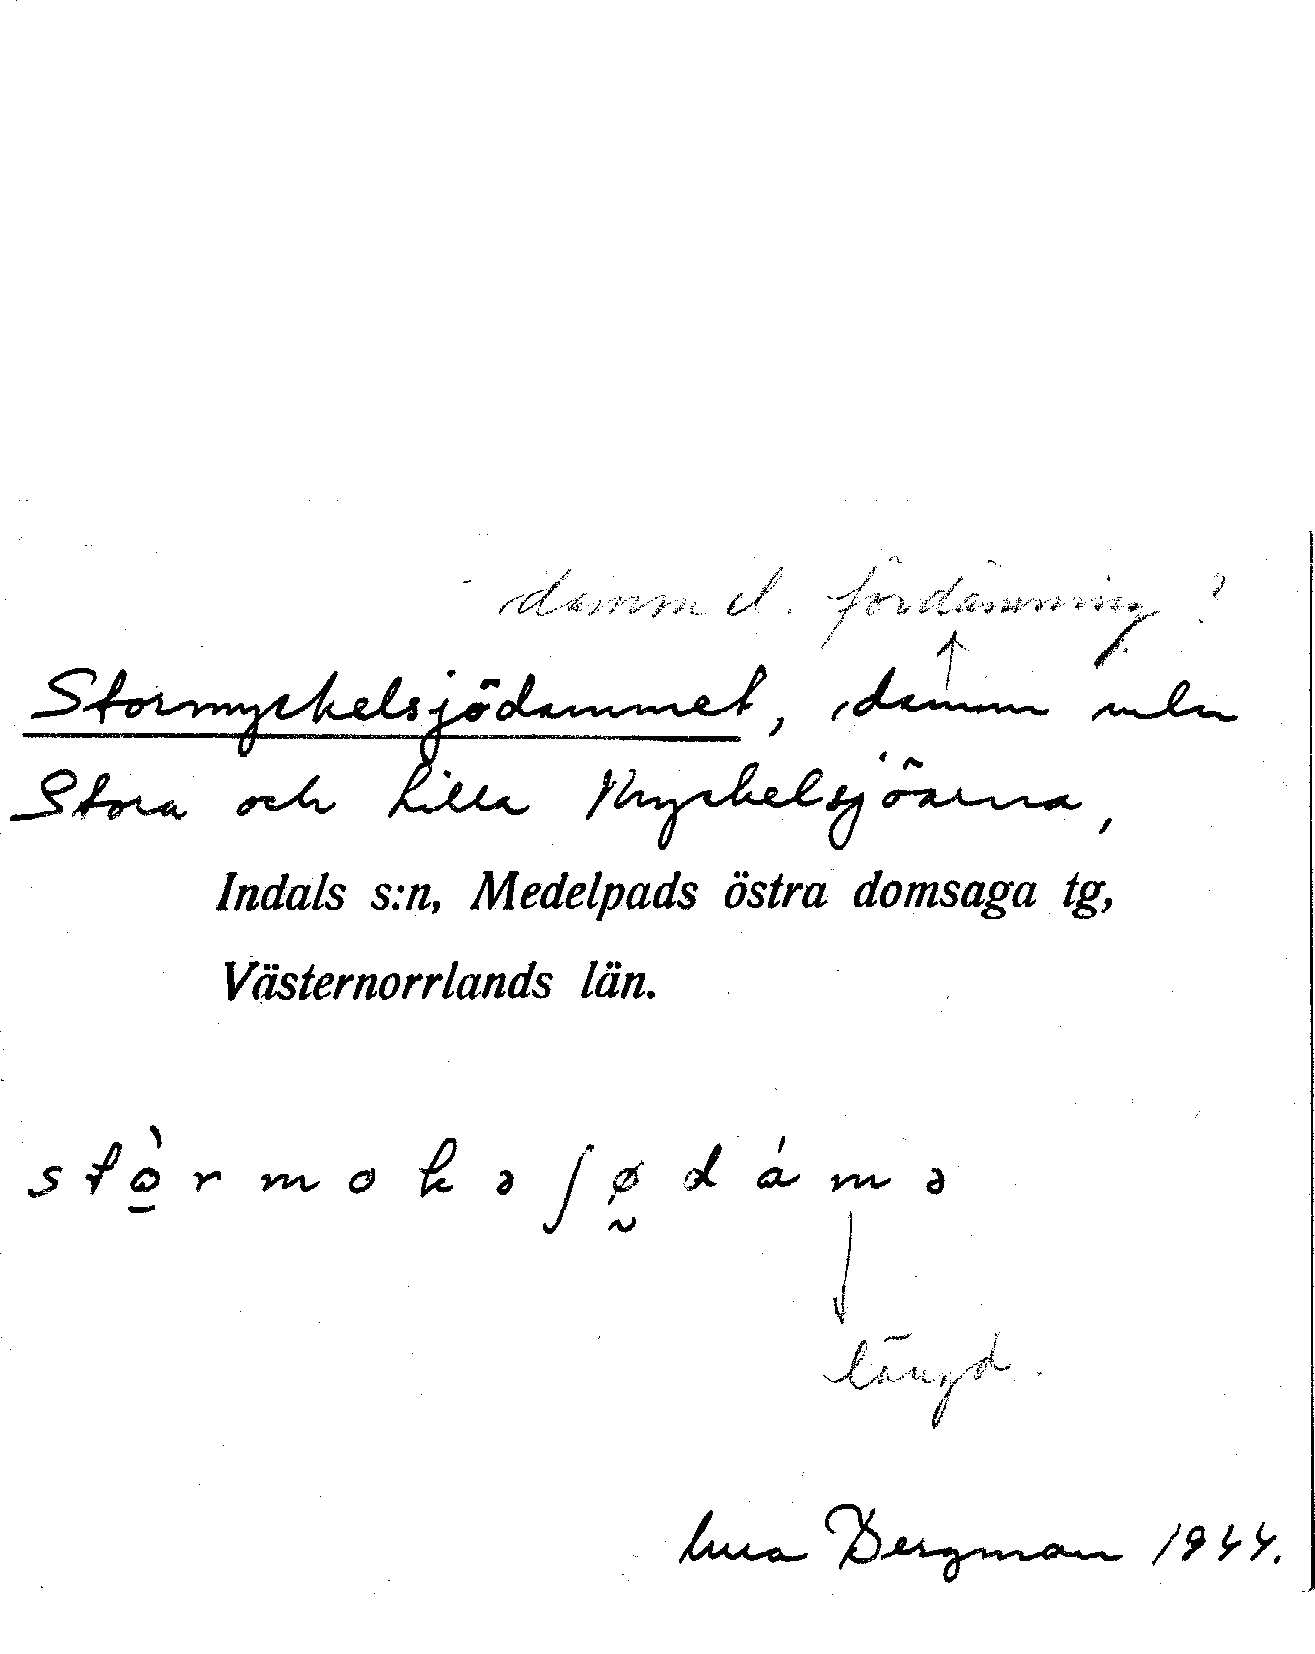 damm el. fördämning?
Stormyckelsjödammet, damm mln
Stora och Lilla Myckelsjöarna,
Indals s:n, Medelpads östra domsaga tg,
Västernorrlands län.
stò̱rmokəʃø̰dámə
längd.
Bergman 1944.